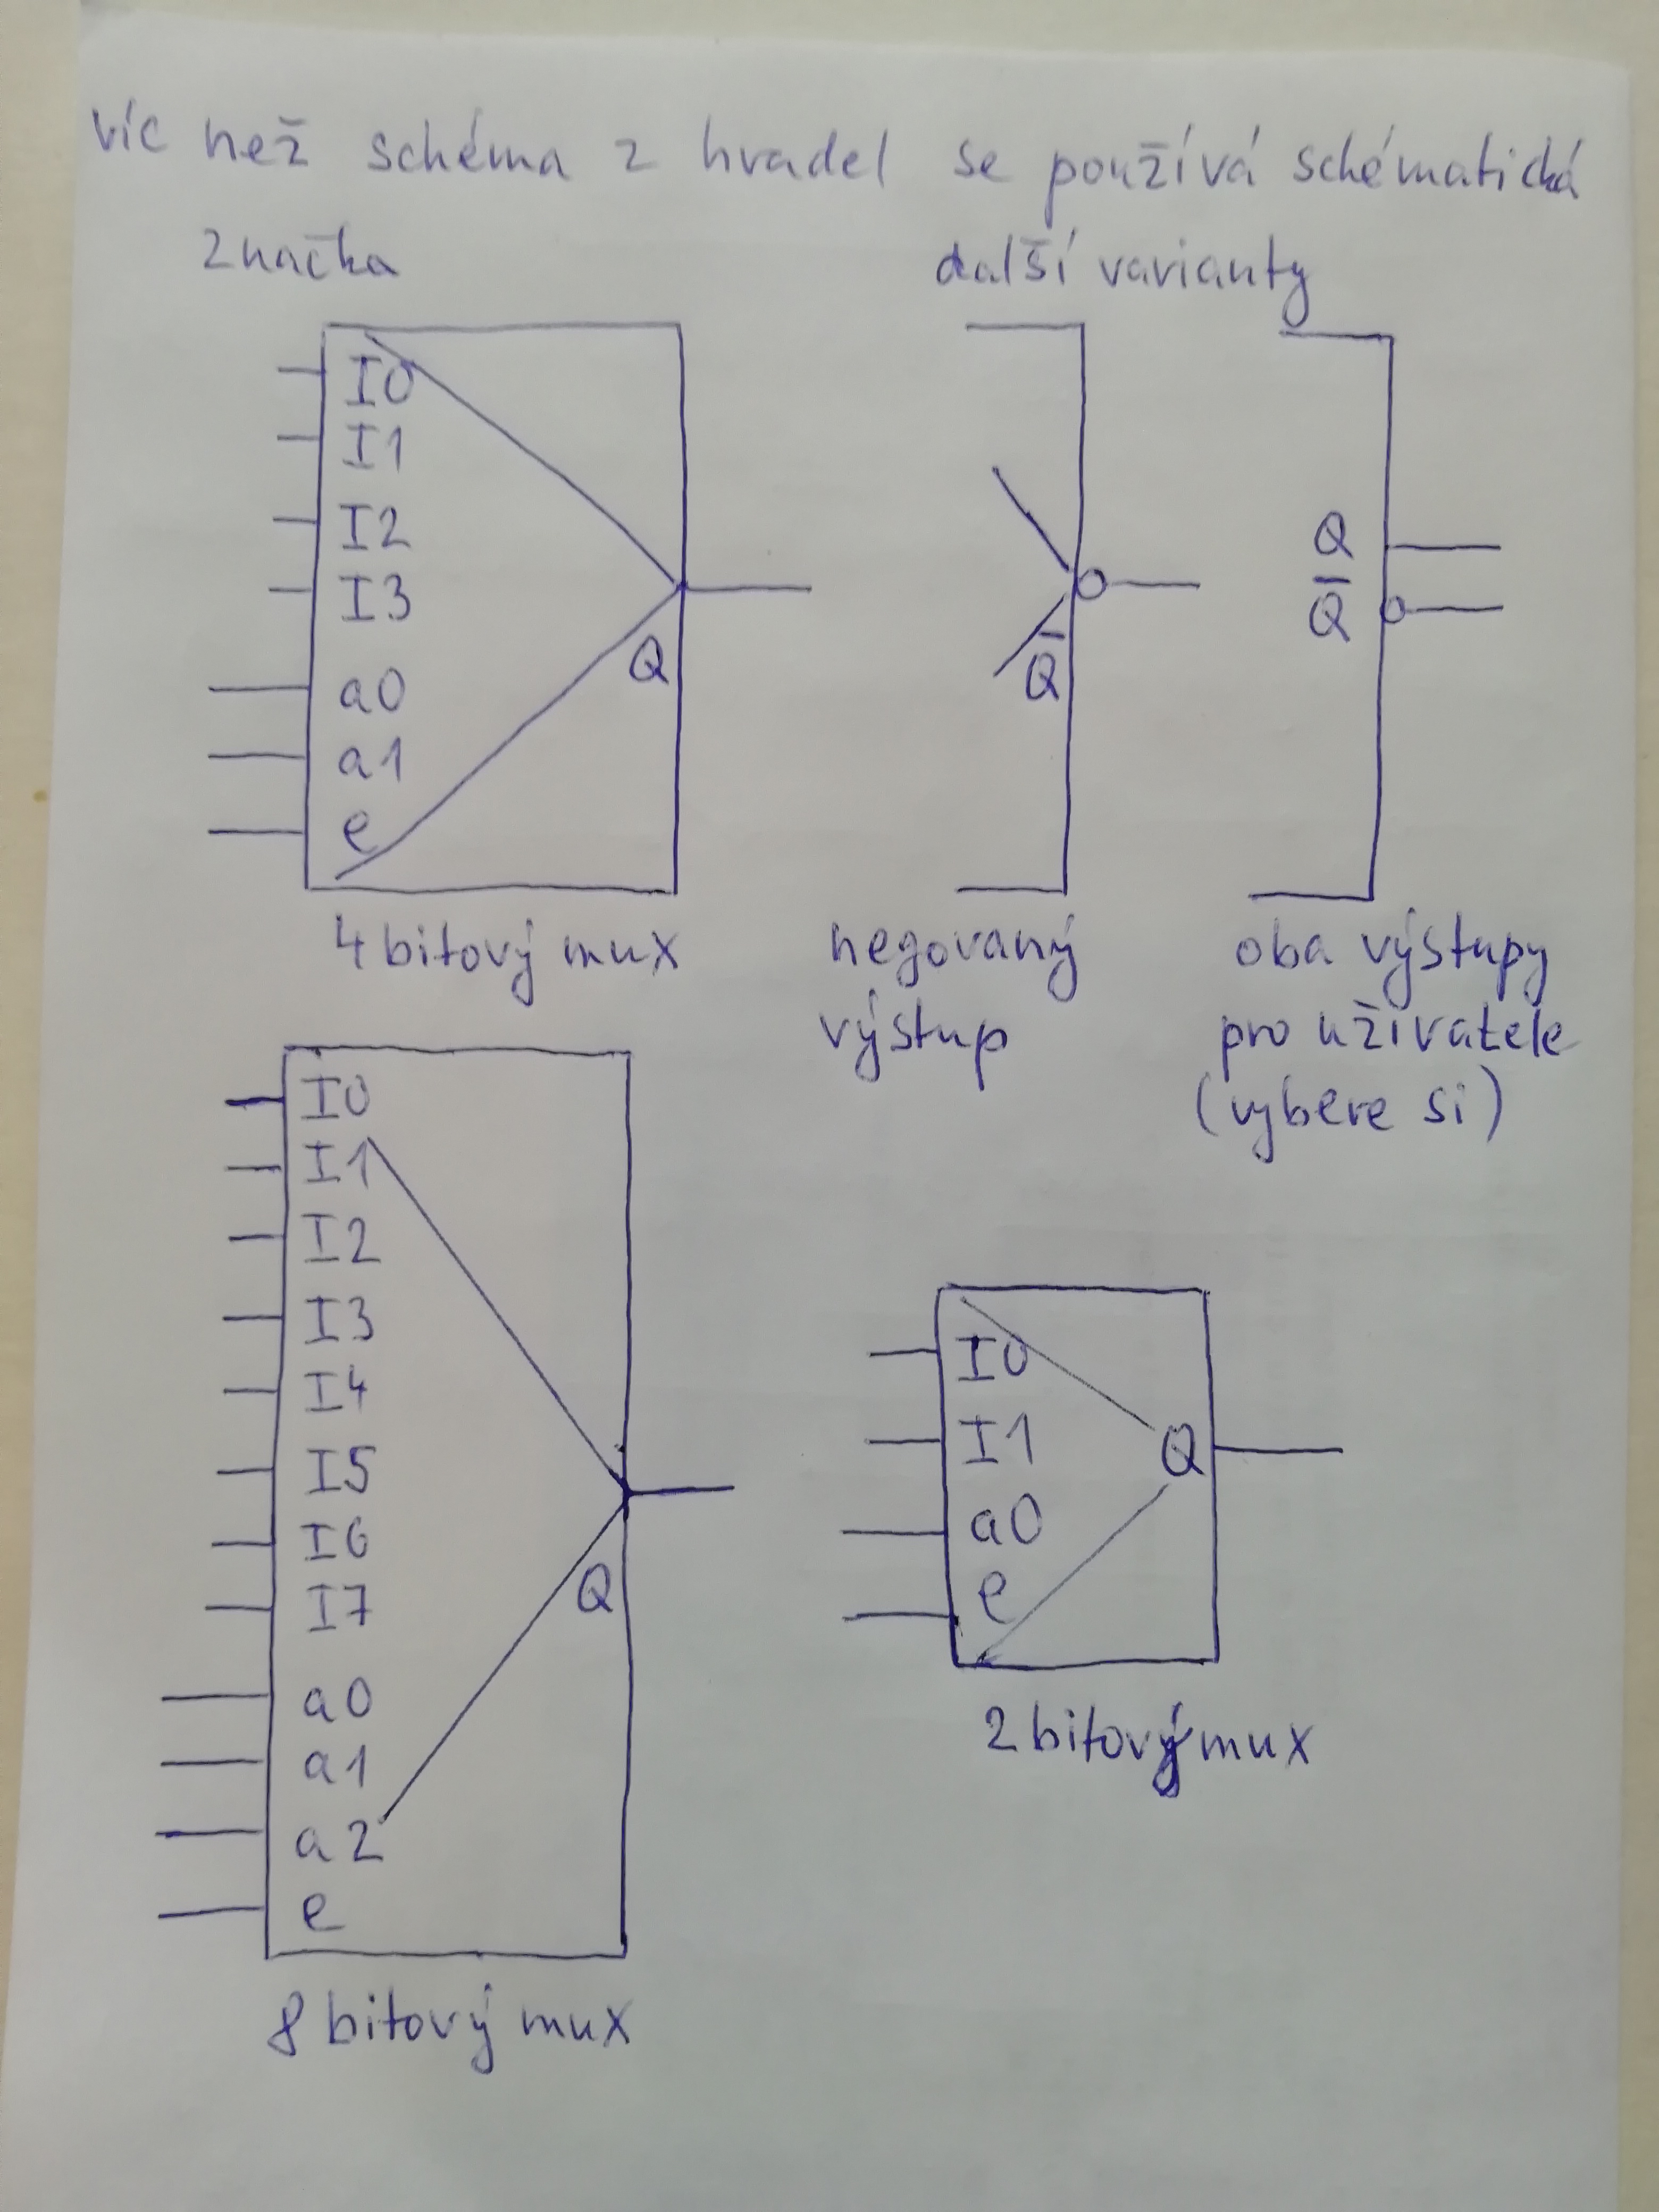 víc než schéma z hradel se používá schématická
značka
další varianty
I0
I1
I2
I3
a0
a1
e
Q
4 bitový mux
Q̅
negovaný
výstup
Q
Q̅
oba výstupy
pro uživatele
(vybere si)
I0
I1
I2
I3
I4
I5
I6
I7
a0
a1
a2
e
Q
8 bitový mux
I0
I1
a0
e
Q
2 bitový mux